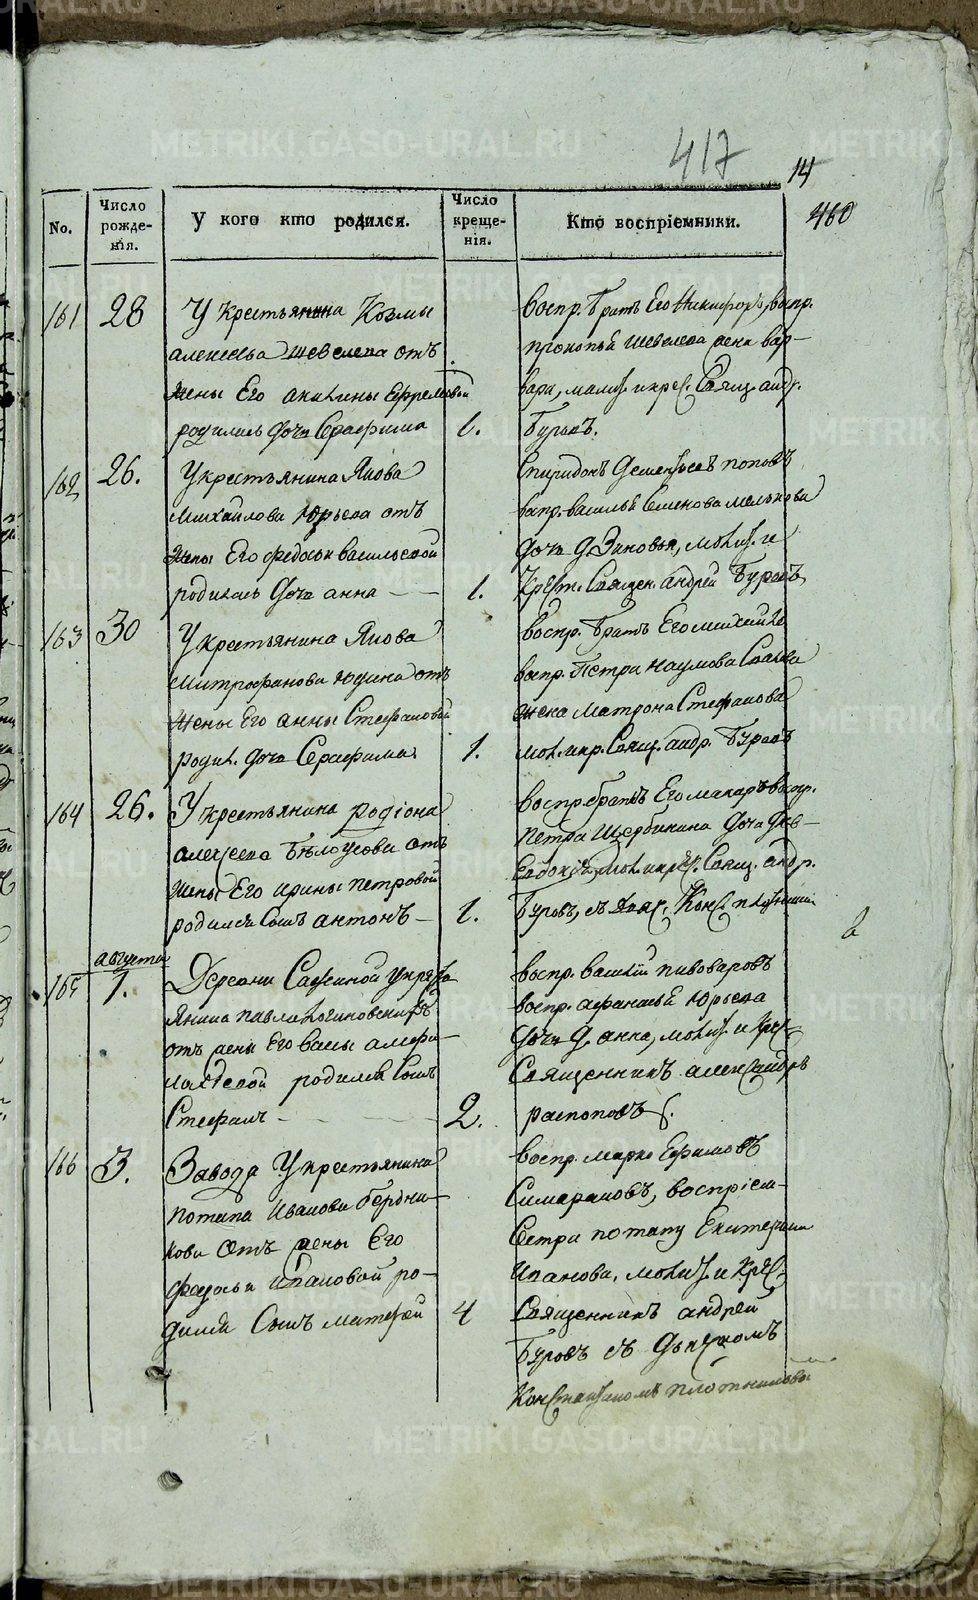 417
14
460
No.
Число рожде-
нія.
У кого кто родился.
Число креще-
нія.
Кто воспріемники.
161 28 У крестьянина Козмы
алексѣева шевелева отъ
жены Его акилины Ефремовой
родилась дочь Серафима 1.
воспр. братъ Его Никифоръ, воспр.
прокопья шевелева жена вар-
вара, молит. и крес. Свящ. андр.
Буровъ.
162 26. У крестьянина Якова
Михайлова Юрьева отъ
жены Его федосьи васильевой
родилась дочь анна 1.
Спиридонъ Дементьевъ поповъ
вспр. василья Семенова мелькова
дочь д. Зиновья, молит. и
Крест. Священ. андрей Буровъ
163 30 У крестьянина Якова
Митрофанова Юдина отъ
жены Его анны Стефановой
родил. дочь Серафима 1.
воспр. братъ Его
воспр. Петра Наумова
жена Матрона Стефанова
мол. и кр. Свящ. андр. Буровъ
164 26. У крестьянина Родіона
алексеева Бѣлоусова отъ
жены Его ирины петровой
родился Сынъ антонъ 1.
воспр. братъ Его макаръ воспр.
Петра Щербинина дочь дев-
Евдокія, мол. и крес. Свящ. андр.
Буровъ, съ дьяк. Конс. плотник
августа
165 1. Деревни Савиной у крестья
янина павла логиновскихъ
отъ жены Его вассы
родился Сынъ
Стефанъ 2.
воспр. василій пивоваровъ
воспр. афанасья Юрьева
дочь д. анна, молит. и Крес
Священникъ александръ
распоповъ.
166 3. Завода У крестьянина
потапа Иванова бердни-
кова отъ жены Его
федосьи Ивановой ро-
дился Сынъ матвей 4
воспр. марко Ефимовъ
воспріем-
Сестра потапу Екатерина
Иванова, молит. и Крес.
Священникъ андрей
Буровъ съ дьячкомъ
Константиномъ плотниковы
METRIKI.GASO-URAL.RU